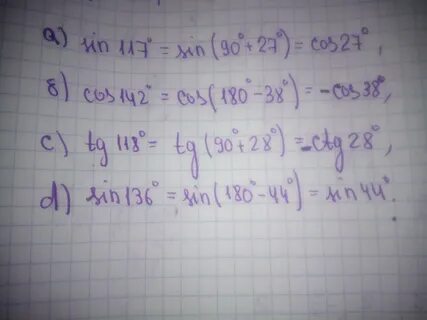 а) sin 117° = sin (90° + 27°) = cos 27°,
б) cos 142° = cos (180° - 38°) = - cos 38°,
с) tg 118° = tg (90° + 28°) = - ctg 28°,
d) sin 136° = sin (180° - 44°) = sin 44°.